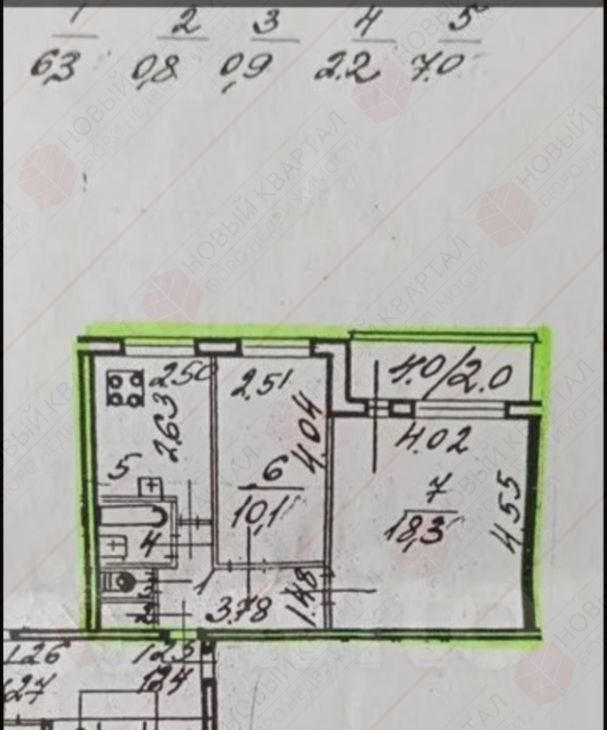 1 2 3 4 5
6,3 0,8 0,9 2.2 7.0
НОВЫЙ КВАРТАЛ
БЮРО НЕДВИЖИМОСТИ
2.50 2.51 4.0/2.0
2.63 4.04 4.02
5 6 7 4.55
10,1 18,3
4
1
3 3.78 1.48
2
126 125
127 124